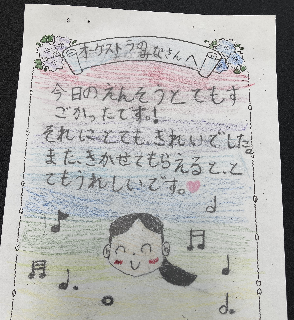 オーケストラのみなさんへ
今日のえんそうとてもす
ごかったです。!
それに、とても、きれいでした。
また、きかせてもらえると、と
てもうれしいです。